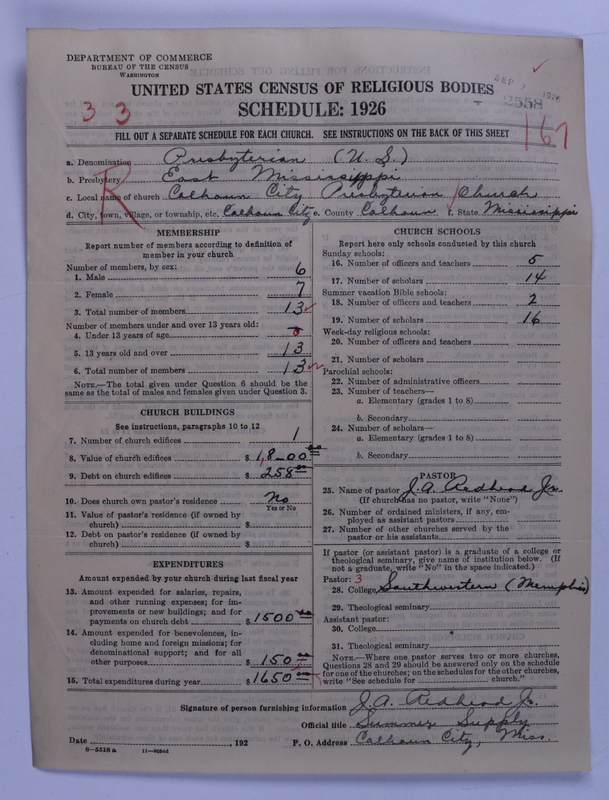 DEPARTMENT OF COMMERCE
BUREAU OF THE CENSUS
WASHINGTON
UNITED STATES CENSUS OF RELIGIOUS BODIES
SCHEDULE: 1926
SEP 1926
2558
3 3
167
R
FILL OUT A SEPARATE SCHEDULE FOR EACH CHURCH. SEE INSTRUCTIONS ON THE BACK OF THIS SHEET
a. Denomination Presbyterian (U.S.)
b. Presbytery East Mississippi
c. Local name of church Calhoun City Presbyterian Church
d. City, town, village, or township, etc. Calhoun City e. County Calhoun f. State Mississippi
MEMBERSHIP
Report number of members according to definition of
member in your church
Number of members, by sex:
1. Male 6
2. Female 7
3. Total number of members 13
Number of members under and over 13 years old:
4. Under 13 years of age 0
5. 13 years old and over 13
6. Total number of members 13
NOTE.—The total given under Question 6 should be
same as the total of males and females given under Question 3.
CHURCH BUILDINGS
See instructions, paragraphs 10 to 12
7. Number of church edifices 1
8. Value of church edifices $ 1,800.00
9. Debt on church edifices $ 258.00
10. Does church own pastor's residence No
Yes or No
11. Value of pastor's residence (if owned by
church) $
12. Debt on pastor's residence (if owned by
church) $
EXPENDITURES
Amount expended by your church during last fiscal year
13. Amount expended for salaries, repairs,
and other running expenses; for im-
provements or new buildings; and for
payments on church debt $ 1500.00
14. Amount expended for benevolences, in-
cluding home and foreign missions; for
denominational support; and for all
other purposes $ 150.00
15. Total expenditures during year $ 1650.00
CHURCH SCHOOLS
Report here only schools conducted by this church
Sunday schools:
16. Number of officers and teachers 5
17. Number of scholars 14
Summer vacation Bible schools:
18. Number of officers and teachers 2
19. Number of scholars 16
Week-day religious schools:
20. Number of officers and teachers
21. Number of scholars
Parochial schools:
22. Number of administrative officers
23. Number of teachers—
a. Elementary (grades 1 to 8)
b. Secondary
24. Number of scholars—
a. Elementary (grades 1 to 8)
b. Secondary
PASTOR
25. Name of pastor J. A. Redhead Jr.
(If church has no pastor, write "None")
26. Number of ordained ministers, if any, em-
ployed as assistant pastors
27. Number of other churches served by the
pastor or his assistants
If pastor (or assistant pastor) is a graduate of a college or
theological seminary, give name of institution below. (If
not a graduate, write "No" in the space indicated.)
Pastor: 3
28. College Southwestern (Memphis)
29. Theological seminary
Assistant pastor:
30. College
31. Theological seminary
NOTE.—Where one pastor serves two or more churches,
Questions 28 and 29 should be answered only on the schedule
for one of the churches; on the schedules for the other churches,
write "See schedule for church."
Signature of person furnishing information J. A. Redhead Jr.
Official title Summer Supply
Date , 192 P. O. Address Calhoun City, Miss.
6-5518 a